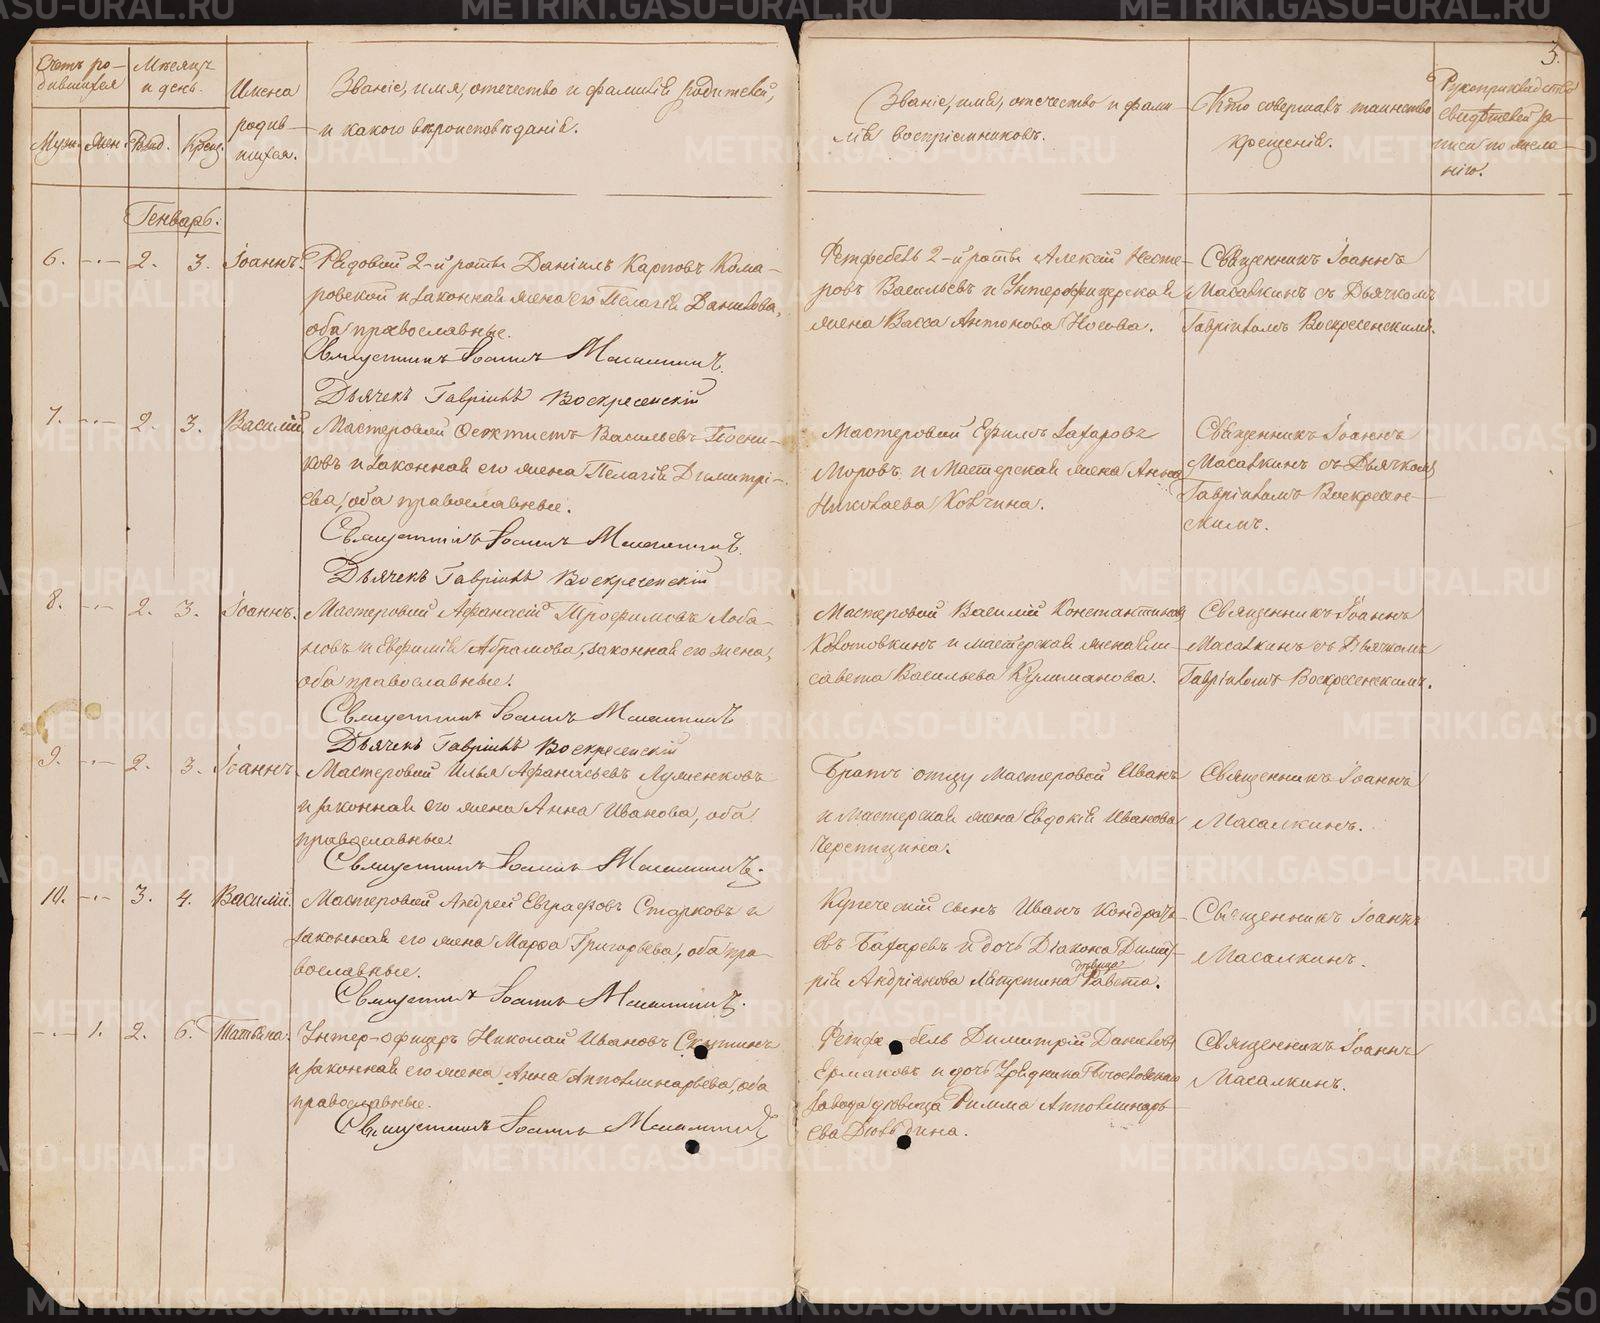 3.
Счетъ ро-
дившихся
Мѣсяцъ
и день.
Муж.
Жен.
Рожд.
Крещ.
Имена
родив-
шихся.
Званіе, имя, отечество и фамилія родителей,
и какого вѣроисповѣданія.
Званіе, имя, отечество и фами-
лія воспріемниковъ.
Кто совершалъ таинство
крещенія.
Рукоприкладство
свидѣтелей за-
писи по жела-
нію.
Генварь.
6. -.- 2. 3. Іоаннъ.
Рядовой 2-й роты Даніилъ Карповъ Кома-
ровской и законная жена его Пелагія Данилова,
оба православные.
Священникъ Іоаннъ Масалкинъ.
Дьячекъ Гавріилъ Воскресенскій
Фетфебель 2-й роты Алексей Несте-
ровъ Васильевъ и Унтерофицерская
жена Васса Антонова Носова.
Священникъ Іоаннъ
Масалкинъ съ Дьячкомъ
Гавріиломъ Воскресенскимъ.
7. -.- 2. 3. Василій
Мастеровой Феоктистъ Васильевъ
ковъ и законная его жена Пелагія Димитрі-
ева, оба православные.
Священникъ Іоаннъ Масалкинъ.
Дьячекъ Гавріилъ Воскресенскій
Мастеровой Ефимъ Захаровъ
Моровъ и Мастерская жена Анна
Николаева Колчина.
Священникъ Іоаннъ
Масалкинъ съ Дьячкомъ
Гавріиломъ Воскресен-
скимъ.
8. -.- 2. 3. Іоаннъ.
Мастеровой Афанасій Трофимовъ Лоба-
новъ и Евфимія Абрамова, законная его жена,
оба православные.
Священникъ Іоаннъ Масалкинъ
Дьячекъ Гавріилъ Воскресенскій
Мастеровой Василій Константиновъ
Колотовкинъ и мастерская жена Ели-
савета Васильева Кулиманова.
Священникъ Іоаннъ
Масалкинъ съ Дьячкомъ
Гавріиломъ Воскресенскимъ.
9. -.- 2. 3. Іоаннъ.
Мастеровой Илья Афанасьевъ Лумпенковъ
и законная его жена Анна Иванова, оба
православные.
Священникъ Іоаннъ Масалкинъ.
Братъ отцу Мастеровой Иванъ
и Мастерская жена Евдокія Иванова
Черепицина.
Священникъ Іоаннъ
Масалкинъ.
10. -.- 3. 4. Василій.
Мастеровой Андрей Евграфовъ Старковъ и
законная его жена Марфа Григорьева, оба пра-
вославные.
Священникъ Іоаннъ Масалкинъ.
Купеческій сынъ Иванъ Кондрать-
евъ Бахаревъ и дочь Діакона Димит-
рія Андріанова Лапустина дѣвица Павета.
Священникъ Іоаннъ
Масалкинъ.
-.- 1. 2. 6. Татьяна.
Унтер-офицеръ Николай Ивановъ Скупинъ
и законная его жена Анна Апполинарьева, оба
православные.
Священникъ Іоаннъ Масалкинъ
Фетфебель Димитрій Даниловъ
Ермаковъ и дочь Урядника
завода дѣвица Римма Апполинарь-
ева Дюльдина.
Священникъ Іоаннъ
Масалкинъ.
METRIKI.GASO-URAL.RU